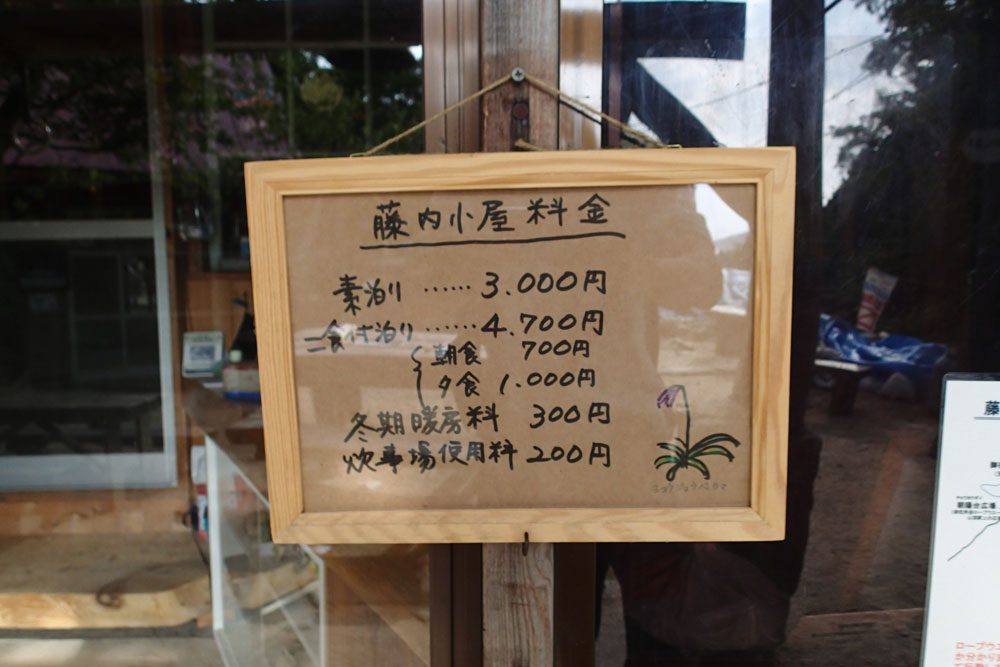 藤内小屋料金
素泊り……3.000円
二食付泊り……4.700円
朝食 700円
夕食 1.000円
冬期暖房料 300円
炊事場使用料 200円
ショウジョウバカマ
藤
朝陽台広場
ロープウ